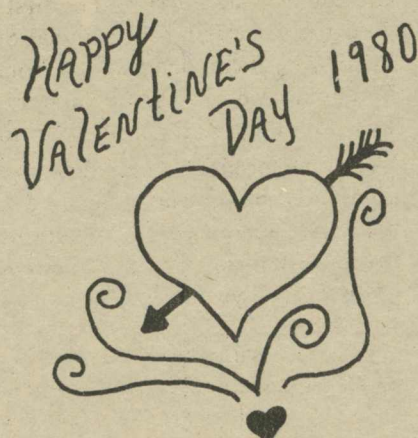 HAPPY
VAlENtiNE'S
DAY 1980